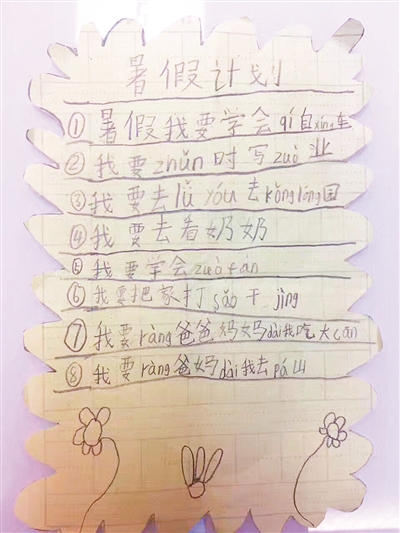 暑假计划
①暑假我要学会qí自xíng车
②我要zhǔn时写zuò业
③我要去lǚ yóu去kǒng lóng园
④我要去看奶奶
⑤我要学会zuò fàn
⑥我要把家打sǎo干jìng
⑦我要ràng爸爸妈妈dài我吃大cān
⑧我要ràng爸妈dài我去pá山